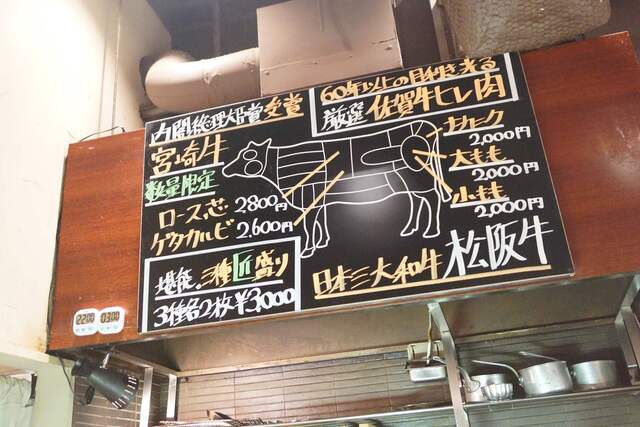 内閣総理大臣賞受賞
宮崎牛
数量限定
ロース芯 2,800円
ゲタカルビ 2,600円
堪能.三種匠盛り
3種各2枚¥3,000
60年以上の目利き光る
厳選 佐賀牛ヒレ肉
2,000円
大もも
2,000円
小もも
2,000円
日本三大和牛 松阪牛